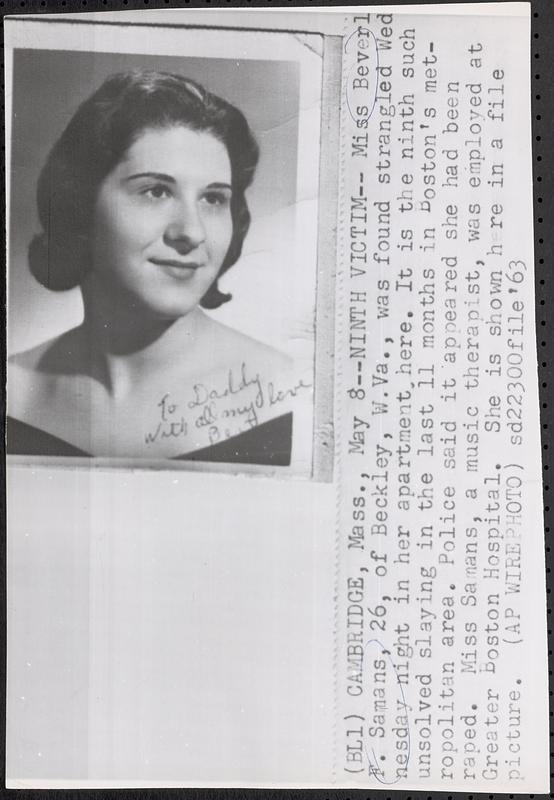 To Daddy
With all my love
Bev
(BL1) CAMBRIDGE, Mass., May 8--NINTH VICTIM-- Miss Beverl
F. Samans, 26, of Beckley, W.Va., was found strangled Wed
nesday night in her apartment here. It is the ninth such
unsolved slaying in the last 11 months in Boston's met-
ropolitan area. Police said it appeared she had been
raped. Miss Samans, a music therapist, was employed at
Greater Boston Hospital. She is shown here in a file
picture. (AP WIREPHOTO) sd22300file'63